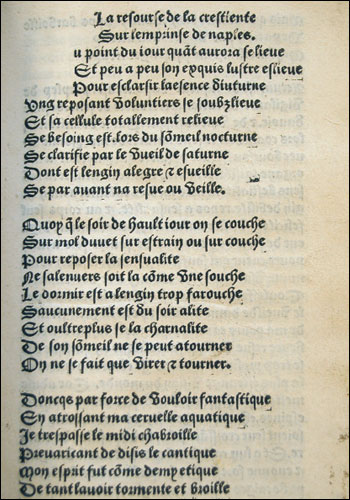 La resourse de la crestiente
Sur lemprinse de naples.
u point du iour quãt aurora se lieue
Et peu a peu son exquis lustre eslieue
Pour esclarsir laesence diuturne
Vng reposant Voluntiers se soubzlieue
Et sa cellule totallement relieue
Se besoing est. lors du sõmeil nocturne
Se clarifie par le Vueil de saturne
Dont est lengin alegre ⁊ esueille
Se par auant na resue ou Veille.
Quoy q̃ le soir de hault iour on se couche
Sur mol duuet sur estrain ou sur couche
Pour reposer la sensualite
Ne salenuers soit la cõme Vne souche
Le dormir est a lengin trop farouche
Saucunement est du soir alite
Et oultreplus se la charnalite
De son sõmeil ne se peut atourner
On ne se fait que Virer ⁊ tourner.
Doncqs par force de Vouloir fantastique
En atrossant ma ceruelle aquatique
Je trespasse le midi chabroille
Preuaricant de disis le cantique
Mon esprit fut cõme demy etique
De tant lauoir tormente et broille